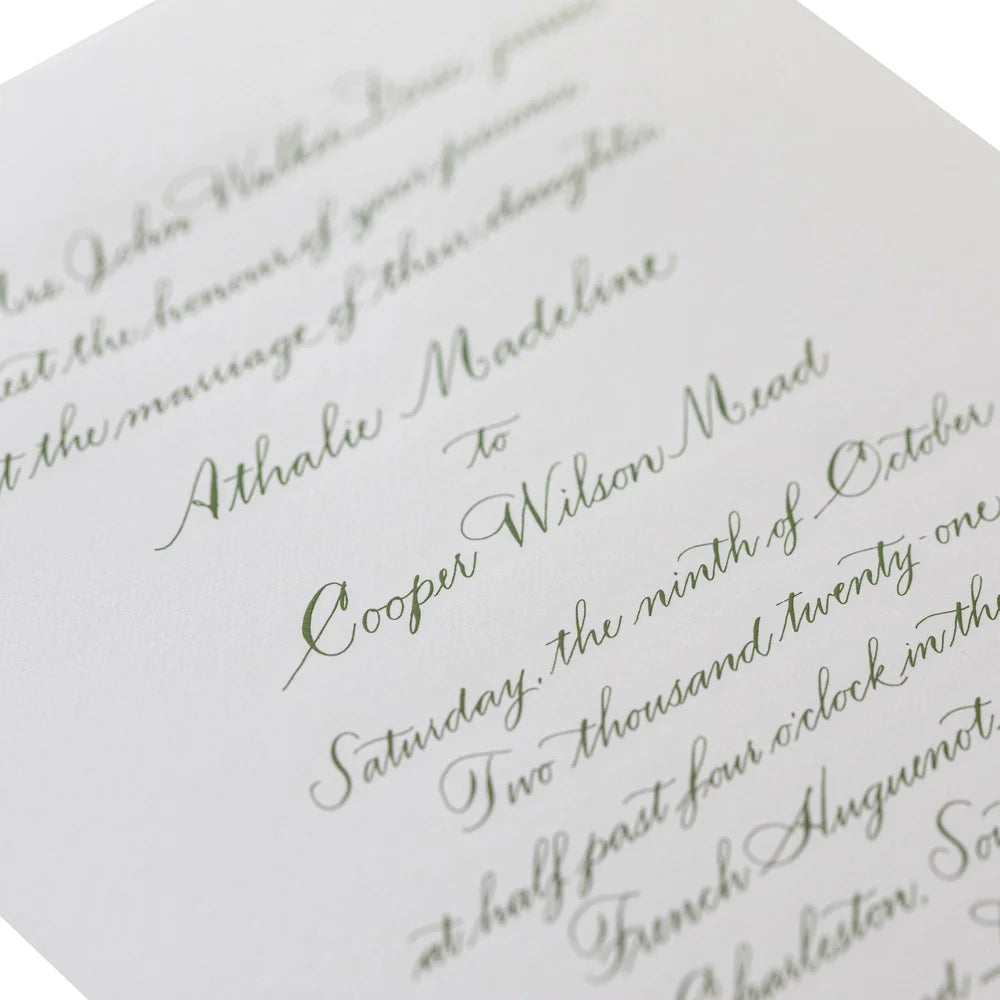 Mrs. John Walker
the honour of your presence
the marriage of their daughter
Athalie Madeline
to
Cooper Wilson Mead
Saturday, the ninth of October
Two thousand twenty-one
at half past four o'clock in the
French Huguenot
Charleston,